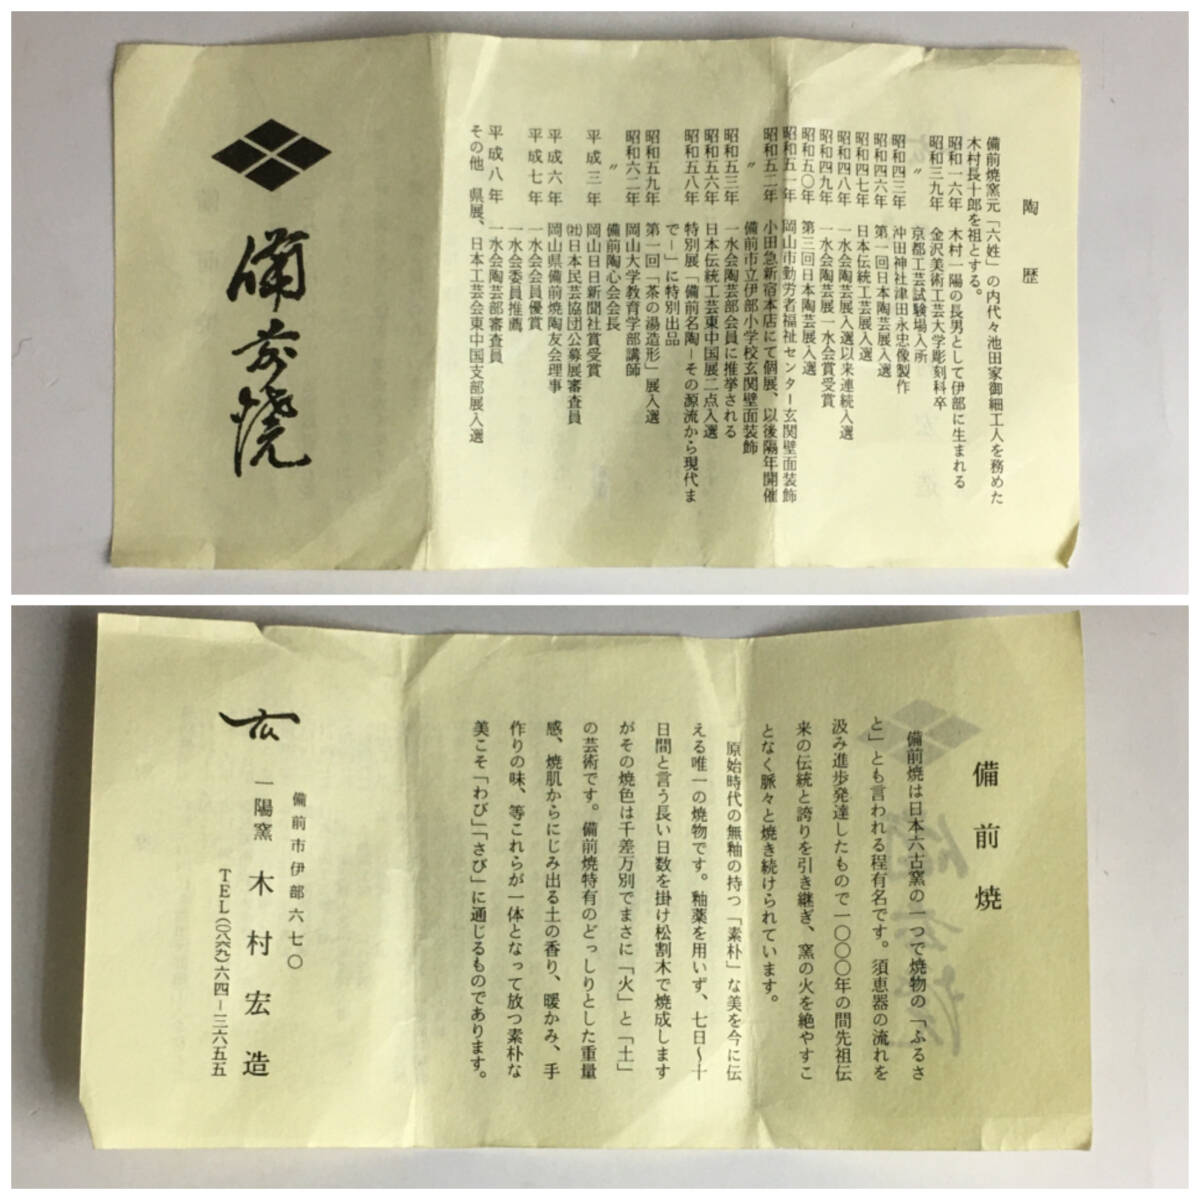 陶歴
備前焼窯元「六姓」の内代々池田家御細工人を務めた
木村長十郎を祖とする。
昭和一六年 木村一陽の長男として伊部に生まれる
昭和三九年 金沢美術工芸大学彫刻科卒
〃 京都工芸試験場入所
昭和四三年 沖田神社津田永忠像製作
昭和四六年 第一回日本陶芸展入選
昭和四七年 日本伝統工芸展入選
昭和四八年 一水会陶芸展入選以来連続入選
昭和四九年 一水会陶芸展一水会賞受賞
昭和五〇年 第三回日本陶芸展入選
昭和五一年 岡山市勤労者福祉センター玄関壁面装飾
昭和五二年 小田急新宿本店にて個展、以後隔年開催
〃 備前市立伊部小学校玄関壁面装飾
昭和五三年 一水会陶芸部会員に推挙される
昭和五六年 日本伝統工芸東中国展二点入選
昭和五八年 特別展「備前名陶−その源流から現代ま
で−」に特別出品
昭和五九年 第一回「茶の湯造形」展入選
昭和六二年 岡山大学教育学部講師
〃 備前陶心会会長
平成三年 岡山日日新聞社賞受賞
㈳日本民芸協団公募展審査員
平成六年 岡山県備前焼陶友会理事
平成七年 一水会会員優賞
一水会委員推薦
平成八年 一水会陶芸部審査員
その他 県展、日本工芸会東中国支部展入選
備前焼
備前焼
備前焼は日本六古窯の一つで焼物の「ふるさ
と」とも言われる程有名です。須恵器の流れを
汲み進歩発達したもので一〇〇〇年の間先祖伝
来の伝統と誇りを引き継ぎ、窯の火を絶やすこ
となく脈々と焼き続けられています。
原始時代の無釉の持つ「素朴」な美を今に伝
える唯一の焼物です。釉薬を用いず、七日〜十
日間と言う長い日数を掛け松割木で焼成します
がその焼色は千差万別でまさに「火」と「土」
の芸術です。備前焼特有のどっしりとした重量
感、焼肌からにじみ出る土の香り、暖かみ、手
作りの味、等これらが一体となって放つ素朴な
美こそ「わび」「さび」に通じるものであります。
備前市伊部六七〇
一陽窯 木村宏造
TEL(〇八六九)六四−三六五五